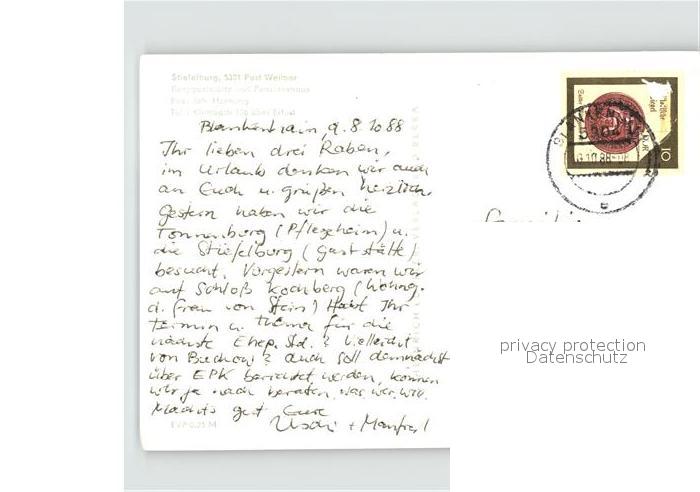 Stiefelburg, 5301 Post Weimar
Blankenhain, 9.8.1088
Ihr lieben drei Raben,
im Urlaub denken wir auch
an Euch u. grüßen herzlich.
Gestern haben wir die
Tonnenburg (Pflegeheim) u.
die Stiefelburg (Gaststätte)
besucht. Vorgestern waren wir
auf Schloß Kochberg (Wohng.
d. Frau von Stein) Habt Ihr
Termin u. Thema für die
nächste Ehep. Std.? Vielleicht
von Buchow? Auch soll demnächst
über EPK berichtet werden, können
wir ja noch beraten, was wir
Machts gut Eure
Uschi + Manfred
EVP 0,25 M
10
privacy protection
Datenschutz